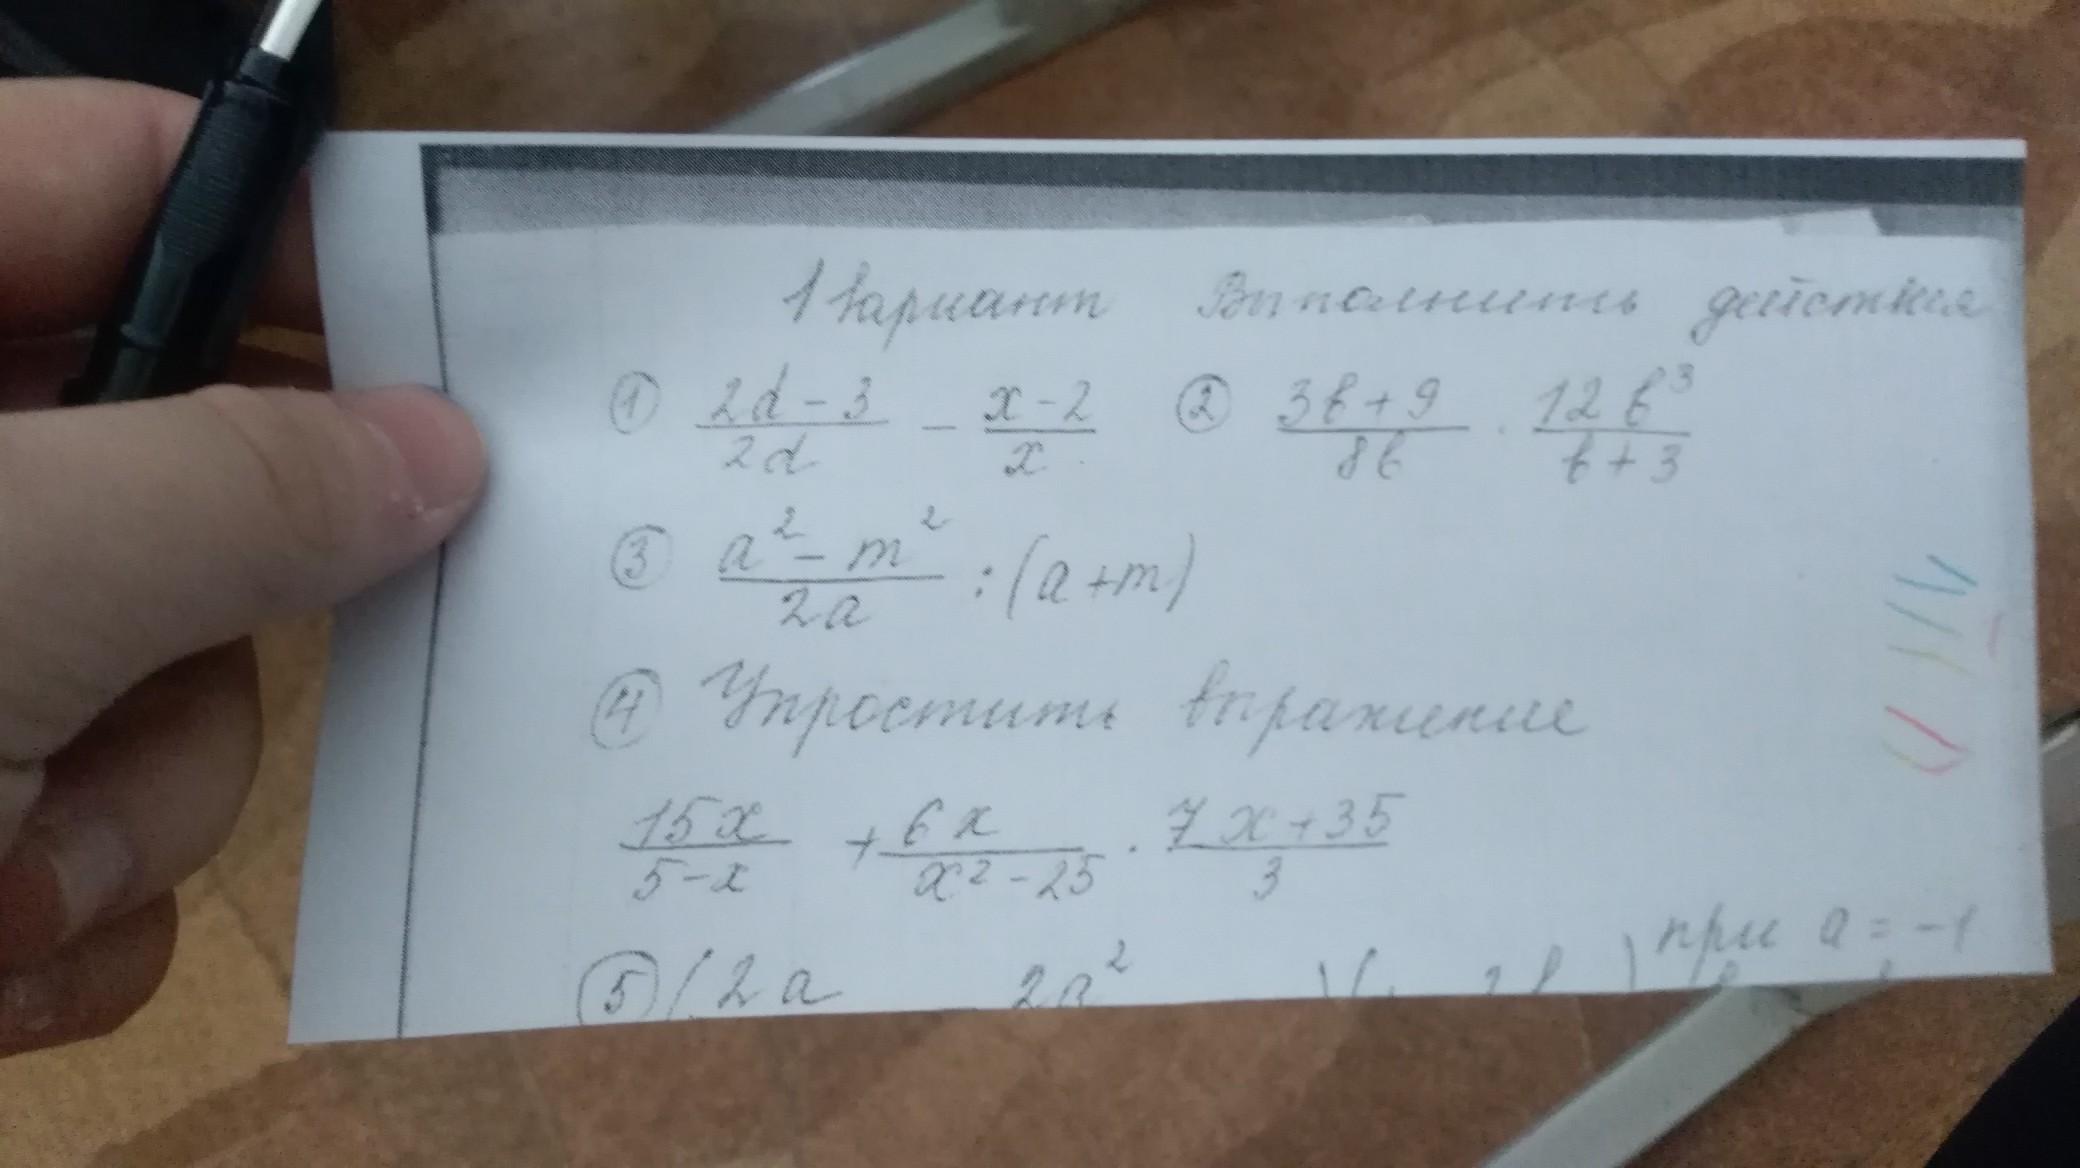 1 вариант Выполнить действия
① (2d - 3)/(2d) - (x - 2)/x ② (3b + 9)/(8b) · (12b³)/(b + 3)
③ (a² - m²)/(2a) : (a + m)
④ Упростить выражение
(15x)/(5 - x) + (6x)/(x² - 25) · (7x + 35)/3
при a = -1
⑤ ( 2a 2a²